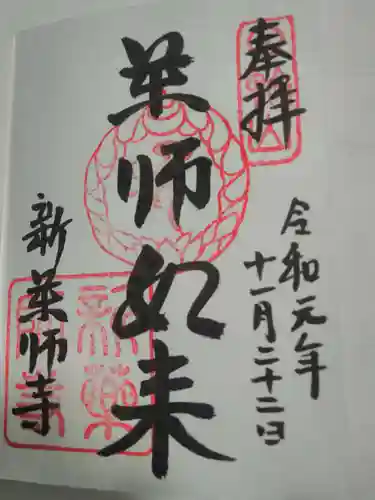 奉拝
令和元年
十一月二十二日
薬師如来
新薬師寺